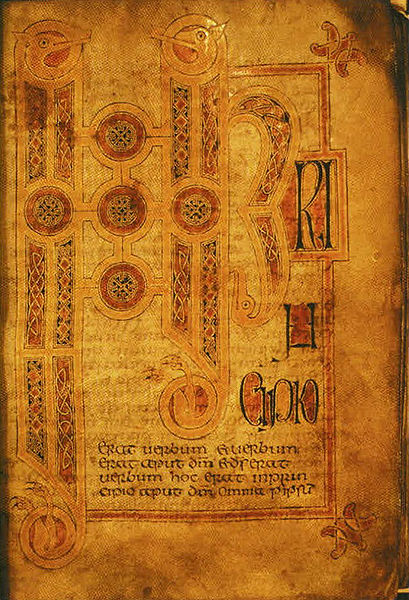 INP
RI
N
CIPIO
erat uerbum & uerbum
erat aput dm̄ & ds̄ erat
uerbum hoc erat inprin
cipio aput dm̄ omnia p ipsū